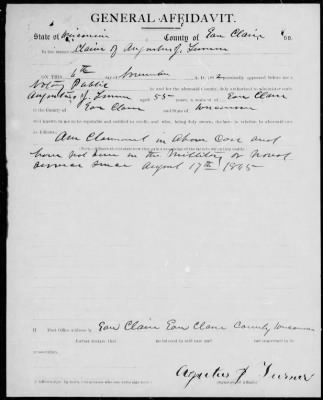 GENERAL AFFIDAVIT.
State of Wisconsin County of Eau Claire SS.
In the matter Claim of Augustus J. Turner
ON THIS 6th day of November A. D. personally appeared before me a
Notary Public in and for the aforesaid County, duly authorized to administer oaths
Augustus J. Turner aged 55 years, a resident of Eau Claire
in the County of Eau Claire and State of Wisconsin
well known to me to be reputable and entitled to credit, and who, being duly sworn, declares in relation to aforesaid case
as follows:
Am Claimant in above Case and
have not been in the Millitary or Naval
service since August 17th 1865
H Post Office address is Eau Claire Eau Claire County Wisconsin
further declares that interested in said case and
prosecution.
Agustus J Turner